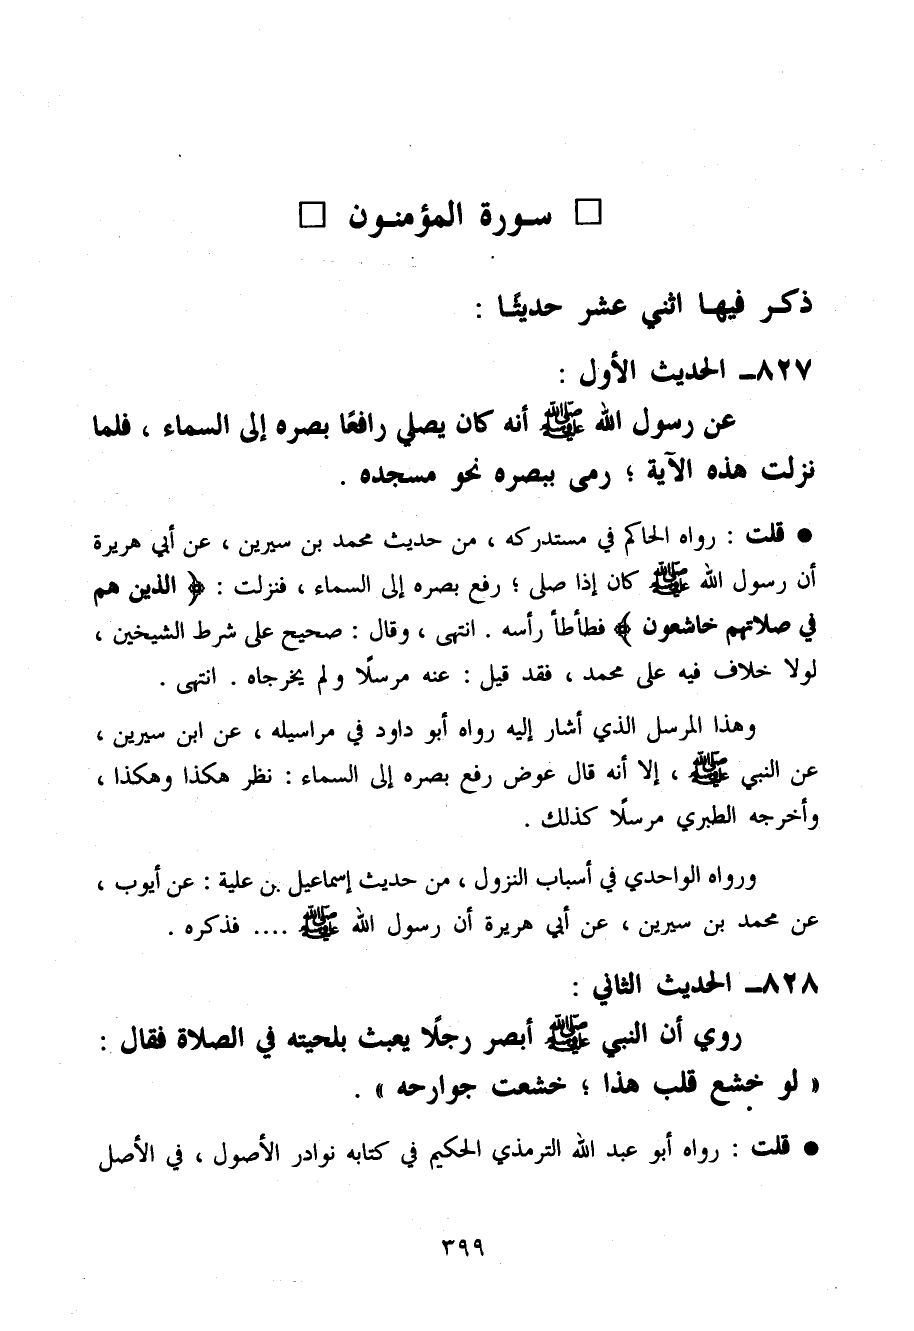 □ سورة المؤمنون □
ذكر فيها اثني عشر حديثًا :
٨٢٧ـ الحديث الأول :
عن رسول الله ﷺ أنه كان يصلي رافعًا بصره إلى السماء ، فلما
نزلت هذه الآية ؛ رمى ببصره نحو مسجده .
● قلت : رواه الحاكم في مستدركه ، من حديث محمد بن سيرين ، عن أبي هريرة
أن رسول الله ﷺ كان إذا صلى ؛ رفع بصره إلى السماء ، فنزلت : ﴿ الذين هم
في صلاتهم خاشعون ﴾ فطأطأ رأسه . انتهى ، وقال : صحيح على شرط الشيخين ،
لولا خلاف فيه على محمد ، فقد قيل : عنه مرسلًا ولم يخرجاه . انتهى .
وهذا المرسل الذي أشار إليه رواه أبو داود في مراسيله ، عن ابن سيرين ،
عن النبي ﷺ ، إلا أنه قال عوض رفع بصره إلى السماء : نظر هكذا وهكذا ،
وأخرجه الطبري مرسلًا كذلك .
ورواه الواحدي في أسباب النزول ، من حديث إسماعيل بن علية : عن أيوب ،
عن محمد بن سيرين ، عن أبي هريرة أن رسول الله ﷺ .... فذكره .
٨٢٨ـ الحديث الثاني :
روي أن النبي ﷺ أبصر رجلًا يعبث بلحيته في الصلاة فقال :
« لو خشع قلب هذا ؛ خشعت جوارحه » .
● قلت : رواه أبو عبد الله الترمذي الحكيم في كتابه نوادر الأصول ، في الأصل
٣٩٩